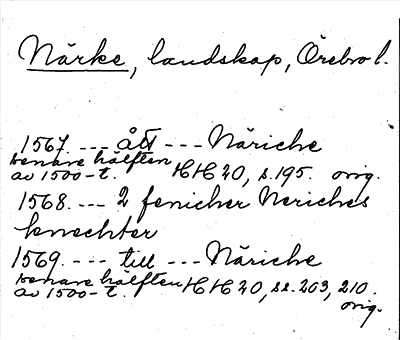 Närke, landskap, Örebro l.
1567. --- ått --- Näriche
senare hälften
av 1500-t. HH 20, s. 195. orig.
1568. --- 2 fenicher Neriches
knechter
1569. --- till --- Näriche
senare hälften
av 1500-t. HH 20, ss. 203, 210.
orig.